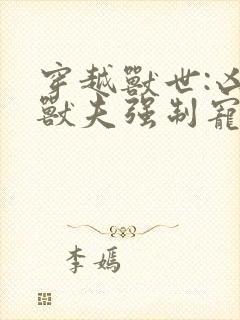 穿越獸世:凶
獸夫强制寵
李嫣